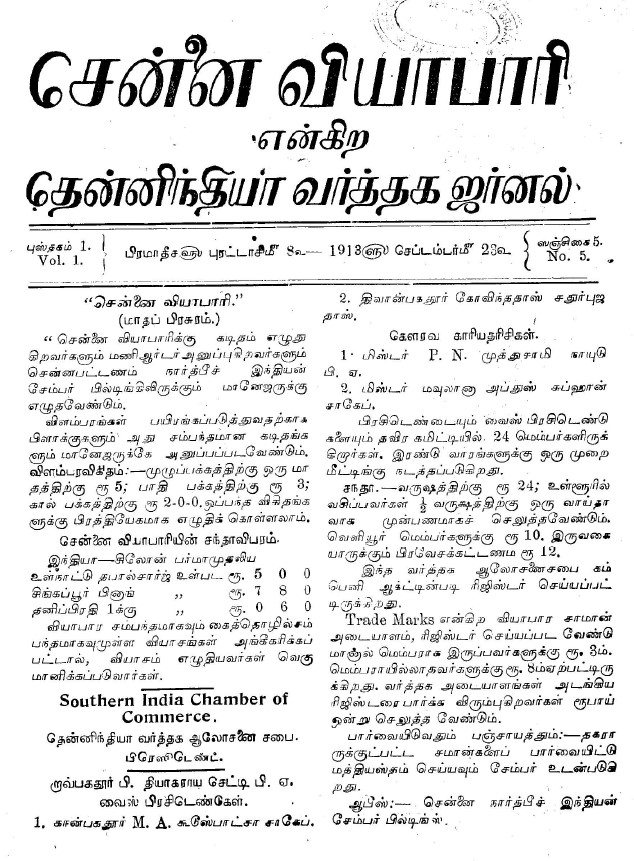 சென்னை வியாபாரி
என்கிற
தென்னிந்தியா வர்த்தக ஜர்னல்
புஸ்தகம் 1.
Vol. 1.
பிரமாதீச௵ புரட்டாசிமீ 8௳— 1913௵ செப்டம்பர்மீ 23௳
ஸஞ்சிகை 5.
No. 5.
"சென்னை வியாபாரி."
(மாதப் பிரசுரம்.)
"சென்னை வியாபாரிக்கு கடிதம் எழுது
கிறவர்களும் மணிஆர்டர் அனுப்புகிறவர்களும்
சென்னபட்டணம் நார்த்பீச் இந்தியன்
சேம்பர் பில்டிங்கிலிருக்கும் மானேஜருக்கு
எழுதவேண்டும்.
விளம்பரங்கள் பயிரங்கப்படுத்துவதற்காக
பிளாக்குகளும் அது சம்பந்தமான கடிதங்க
ளும் மானேஜருக்கே அனுப்பப்படவேண்டும்.
விளம்பரவிகிதம்:—முழுப்பக்கத்திற்கு ஒரு மா
தத்திற்கு ரூ 5; பாதி பக்கத்திற்கு ரூ 3;
கால் பக்கத்திற்கு ரூ 2-0-0. ஒப்பந்த விகிதங்க
ளுக்கு பிரத்தியேகமாக எழுதிக் கொள்ளலாம்.
சென்னை வியாபாரியின் சந்தாவிபரம்.
இந்தியா—சிலோன் பர்மாமுதலிய
உள்நாட்டு தபால்சார்ஜ் உள்பட ரூ. 5 0 0
சிங்கப்பூர் பினாங் ,, ரூ. 7 8 0
தனிப்பிரதி 1க்கு ,, ரூ. 0 6 0
வியாபார சம்பந்தமாகவும் கைத்தொழில்சம்
பந்தமாகவுமுள்ள வியாசங்கள் அங்கீகரிக்கப்
பட்டால், வியாசம் எழுதியவர்கள் வெகு
மானிக்கப்படுவார்கள்.
Southern India Chamber of
Commerce.
தென்னிந்தியா வர்த்தக ஆலோசனை சபை.
பிரெஸிடெண்ட்.
ராவ்பகதூர் பி. தியாகராய செட்டி பி. ஏ.
வைஸ் பிரசிடெண்கேள்.
1. கான்பகதூர் M. A. கூடூஸ்பாட்சா சாகேப்.
2. திவான்பகதூர் கோவிந்ததாஸ் சதுர்புஜ
தாஸ்.
கௌரவ காரியதரிசிகள்.
1. மிஸ்டர் P. N. முத்துசாமி நாயுடு
பி. ஏ.
2. மிஸ்டர் மவுலானா அப்துஸ் சுப்ஹான்
சாகேப்.
பிரசிடெண்டையும் வைஸ் பிரசிடெண்டு
களையும் தவிர கமிட்டியில். 24 மெம்பர்களிருக்
கிறார்கள். இரண்டு வாரங்களுக்கு ஒரு முறை
மீட்டிங்கு நடத்தப்படுகிறது.
சந்தா.—வருஷத்திற்கு ரூ 24; உள்ளூரில்
வசிப்பவர்கள் ½ வருக்ஷத்திற்கு ஒரு வாய்தா
வாக முன்பணமாகச் செலுத்தவேண்டும்.
வெளியூர் மெம்பர்களுக்கு ரூ 10. இருவகை
யாருக்கும் பிரவேசக்கட்டணம ரூ 12.
இந்த வர்த்தக ஆலோசணைசபை கம்
பெனி ஆக்ட்டின்படி ரிஜிஸ்டர் செய்யப்பட்
டிருக்கிறது.
Trade Marks என்கிற வியாபார சாமான்
அடையாளம், ரிஜிஸ்டர் செய்யப்பட வேண்டு
மானால் மெம்பராக இருப்பவர்களுக்கு ரூ. 3ம்.
மெம்பராயில்லாதவர்களுக்கு ரூ. 8ம்ஏற்பட்டிரு
க்கிறது. வர்த்தக அடையாளங்கள் அடங்கிய
ரிஜிஸ்டரை பார்க்க விரும்புகிறவர்கள் ரூபாய்
ஒன்று செலுத்த வேண்டும்.
பார்வையிடுவதும் பஞ்சாயத்தும்:—தகரா
ருக்குட்பட்ட சமான்களைப் பார்வையிட்டு
மத்தியஸ்தம் செய்யவும் சேம்பர் உடன்படுகி
றது.
ஆபீஸ்:— சென்னை நார்த்பீச் இந்தியன்
சேம்பர் பில்டிங்ஸ்.